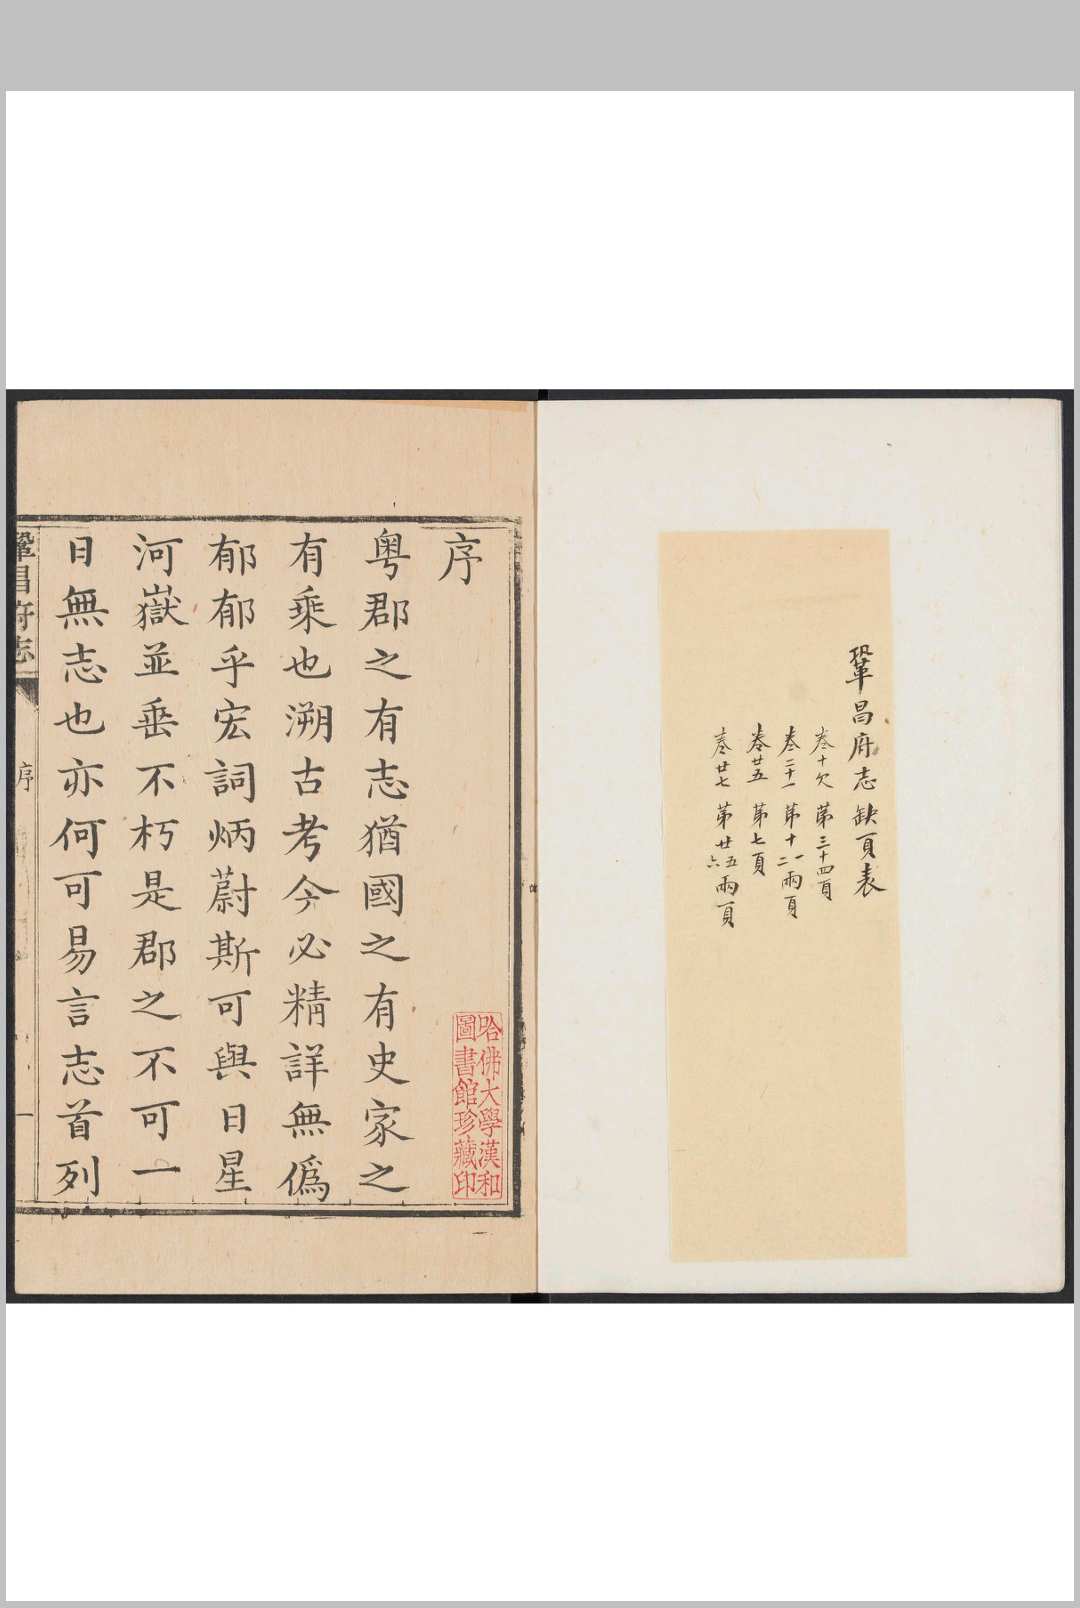 鞏昌府志缺頁表
卷十欠 第三十四頁
卷二十一 第十一二兩頁
卷廿五 第七頁
卷廿七 第廿五六兩頁
序
粤郡之有志猶國之有史家之
有乘也溯古考今必精詳無僞
郁郁乎宏詞炳蔚斯可與日星
河嶽並垂不朽是郡之不可一
日無志也亦何可易言志首列
哈佛大學漢和
圖書館珍藏印
鞏昌府志 序 一